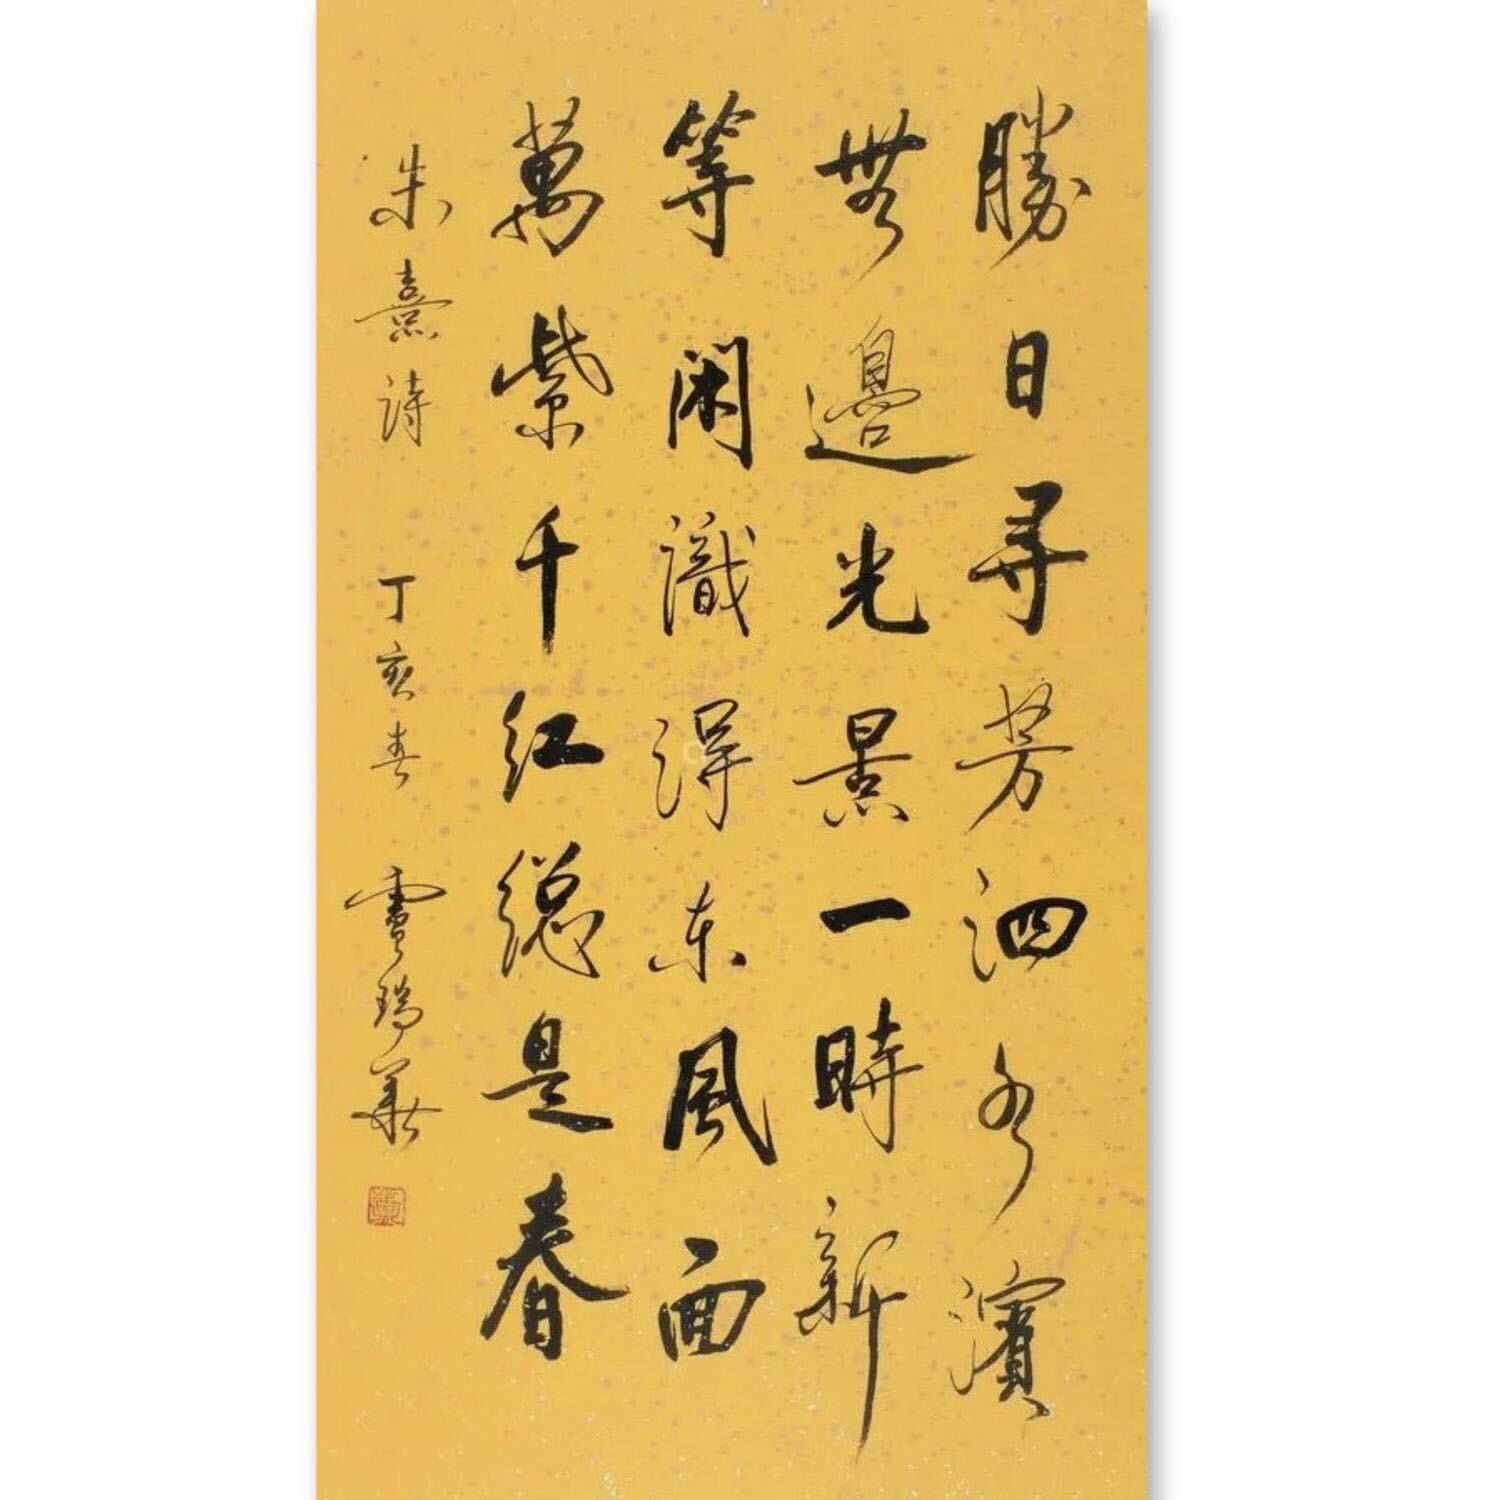 勝日尋芳泗水濱
無邊光景一時新
等闲識得东風面
萬紫千红總是春
朱熹詩 丁亥春 曹瑞華